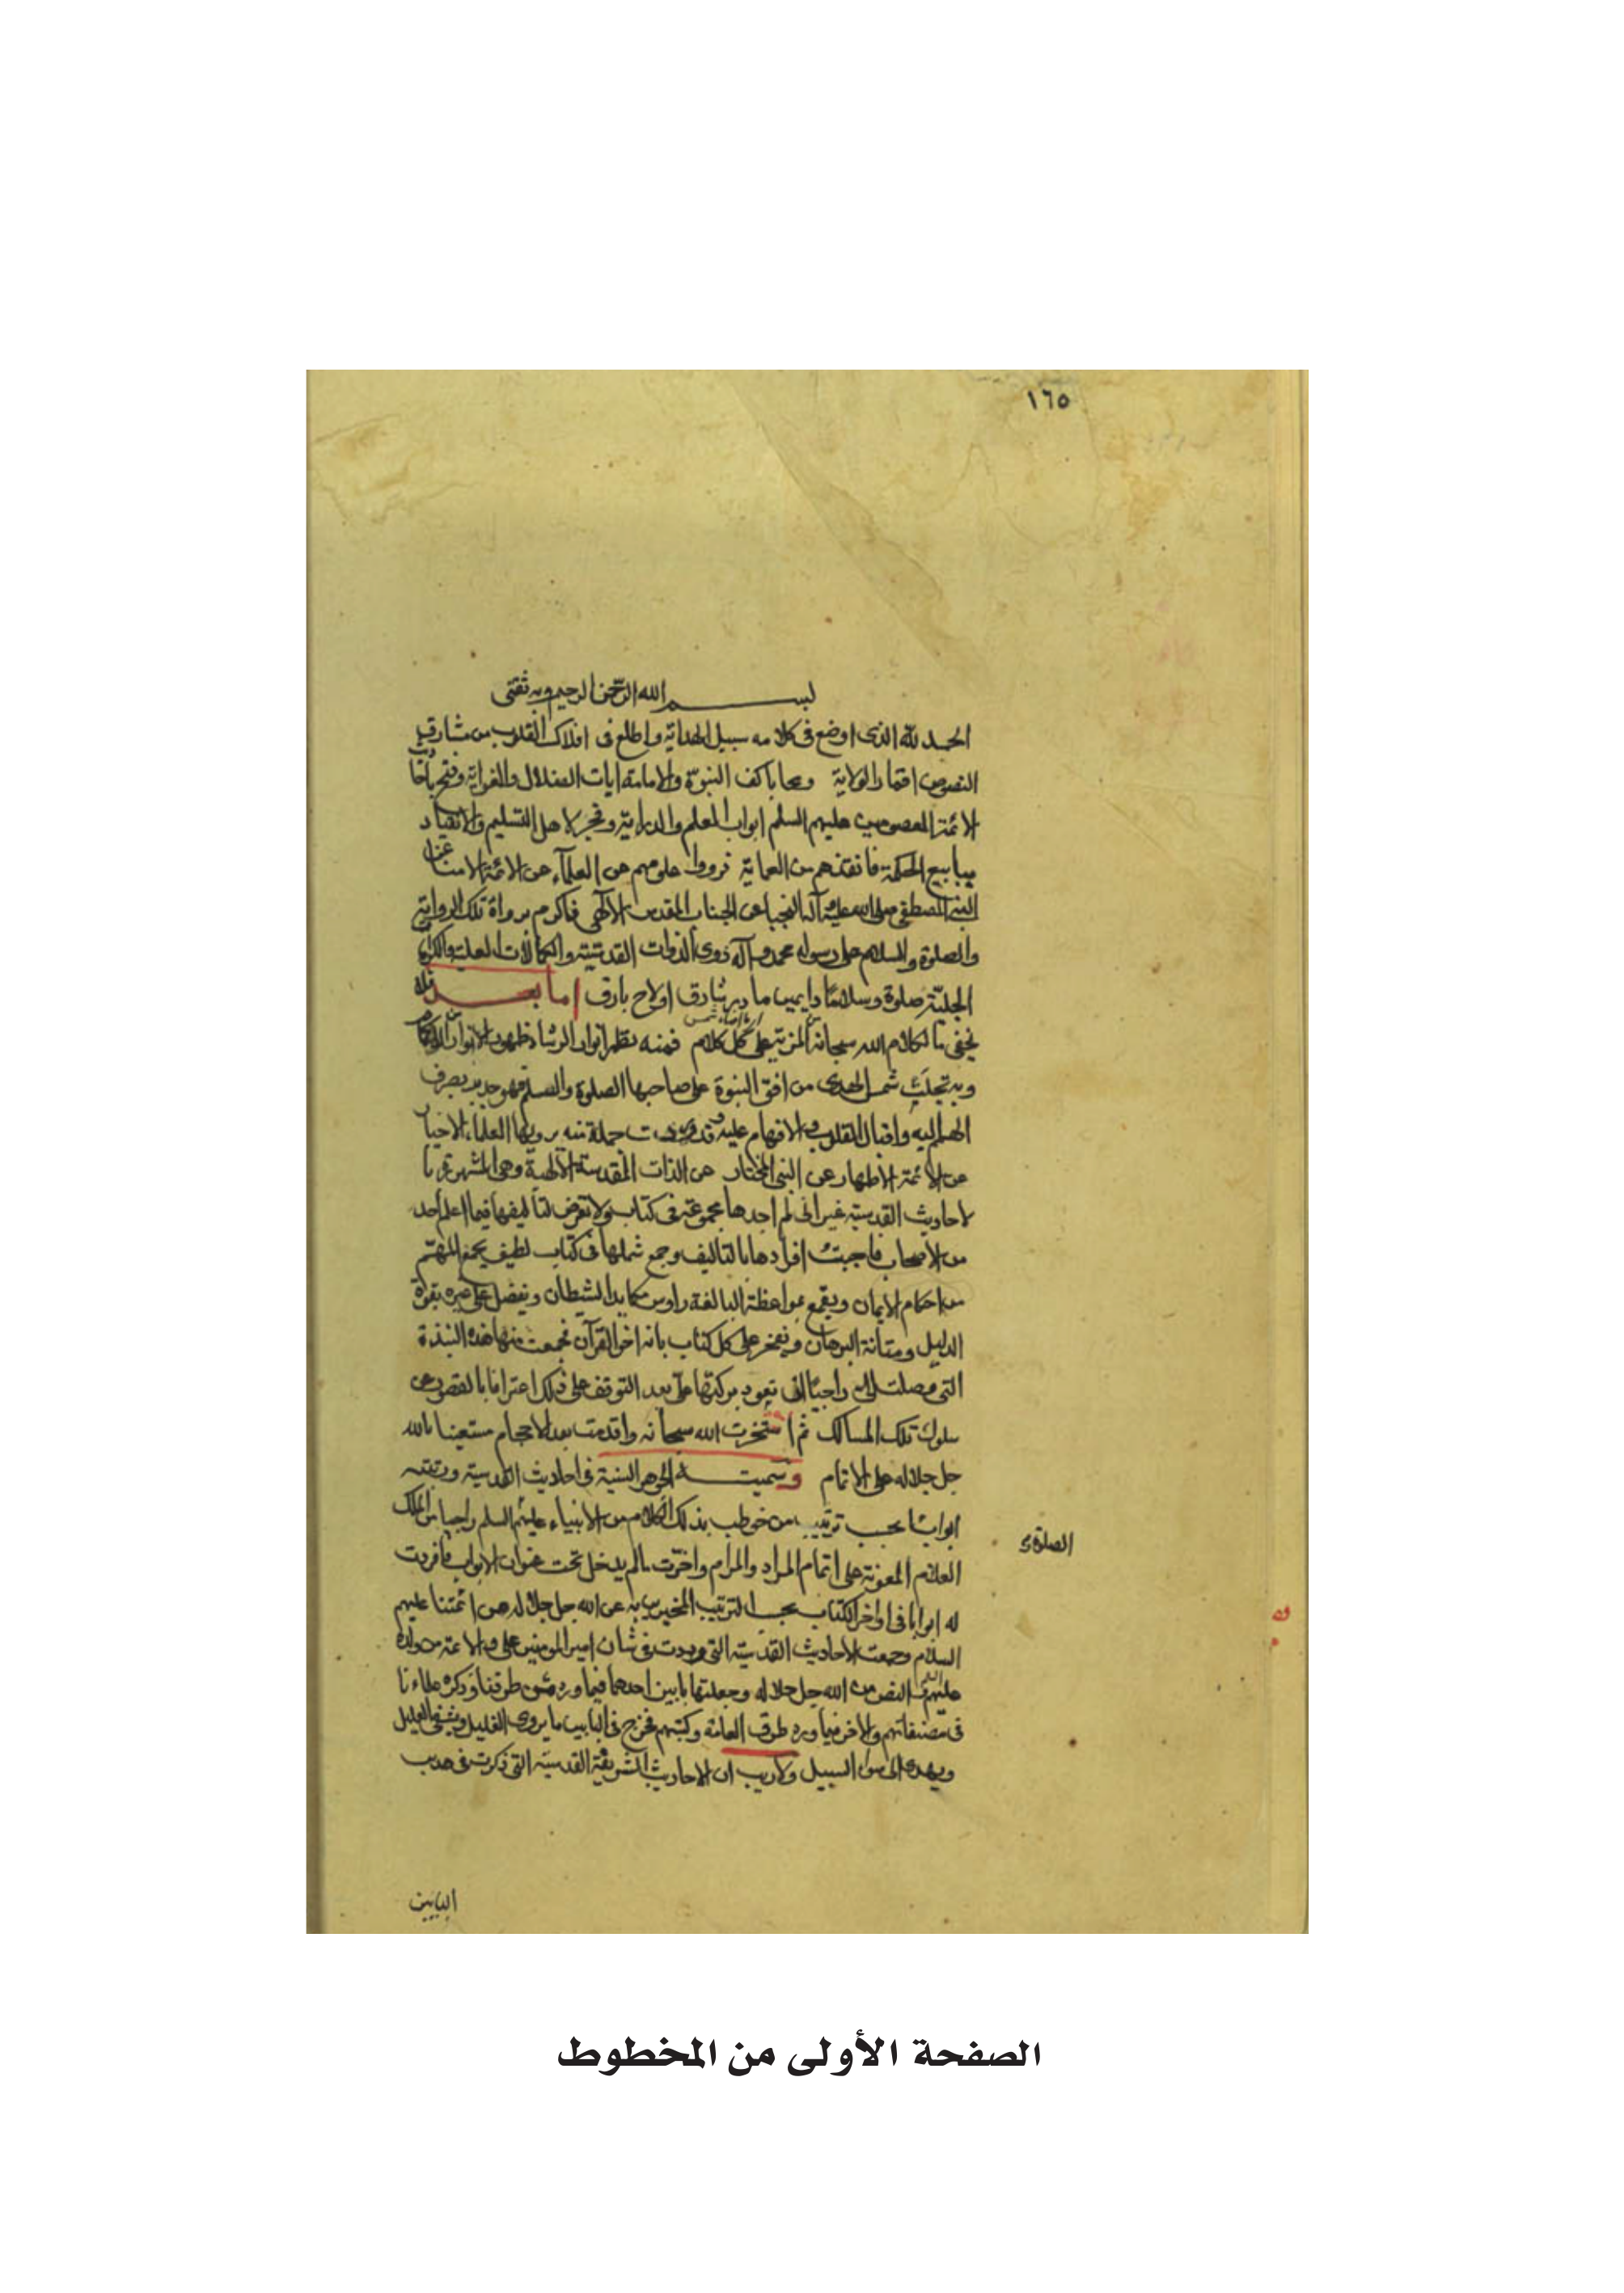 ١٦٥
بسم الله الرحمن الرحيم وبه ثقتي
الحمد لله الذي اوضح في كلامه سبيل الهداية واطلع في افلاك القلوب من مشارق
النصوص اقمار الولاية ومحا باكف النبوة والامامة ايات الضلال والغواية وفتح باحاديث
الائمة المعصومين عليهم السلم ابواب العلم والدراية وفجر لاهل التسليم والانقياد
ينابيع الحكمة فانقذهم من العماية فرووا علومهم عن العلماء عن الائمة الامنا عن
النبي المصطفى صلى الله عليه وآله النجبا عن الجناب المقدس الالهي فاكرم برواة تلك الرواية
والصلوة والسلام على رسوله محمد وآله ذوي الذوات القدسية والكمالات العلية والكرامات
الجلية صلوة وسلاما دايمين ما ذر شارق اولاح بارق اما بعد فلا
يخفى ما لكلام الله سبحانه من المزية على كل كلام فمنه تظهر انوار الرشاد
وبه تجلت شمس الهدى من افق النبوة على صاحبها الصلوة والسلم فهو جدير بصرف
الهمم اليه واقبال القلوب والافهام عليه وقد وردت جملة منه يرويها العلماء الاخيار
عن الائمة الاطهار عن النبي المختار عن الذات المقدسة الالهية وهي المشهورة با
لاحاديث القدسية غير اني لم اجدها مجموعة في كتاب ولا تعرض لتاليفها فيما اعلم احد
من الاصحاب فاحببت افرادها بالتاليف وجمع شملها في كتاب لطيف يجمع المهم
من احكام الايمان ويقمع بمواعظه البالغة راوس مكايد الشيطان ويفضل على غيره بقوة
الدليل ومتانة البرهان ويفخر على كل كتاب بانه اخو القرآن فجمعت منها هذه النبذة
التي وصلت الي راجيا ان تعود بركتها علي بعد التوقف على ذلك اعترافا بالقصور عن
سلوك تلك المسالك ثم استخرت الله سبحانه واقدمت بعد الاحجام مستعينا بالله
جل جلاله على الاتمام وسميته الجواهر السنية في احاديث القدسية ورتبته
ابوابا بحسب ترتيب من خوطب بذلك الكلام من الانبياء عليهم السلم راجيا من الملك
العلام المعونة على اتمام المراد والمرام واخرت ما لم يدخل تحت عنوان الابواب فافردت
له ابوابا في اواخر الكتاب بحسب ترتيب المخبرين به عن الله جل جلاله من ائمتنا عليهم
السلام وجمعت الاحاديث القدسية التي وردت في شان امير المومنين علي والائمة من ولده
عليهم السلم النص من الله جل جلاله وجعلتها بابين احدهما فيما ورد من طرقنا وذكره علماءنا
في مصنفاتهم والاخر فيما ورد من طرق العامة وكتبهم فخرج في البابين ما يروي الغليل ويشفي العليل
ويهدي الى سواء السبيل ولا ريب ان الاحاديث الشريفة القدسية التي ذكرت في هذين
البابين
الصفحة الأولى من المخطوط